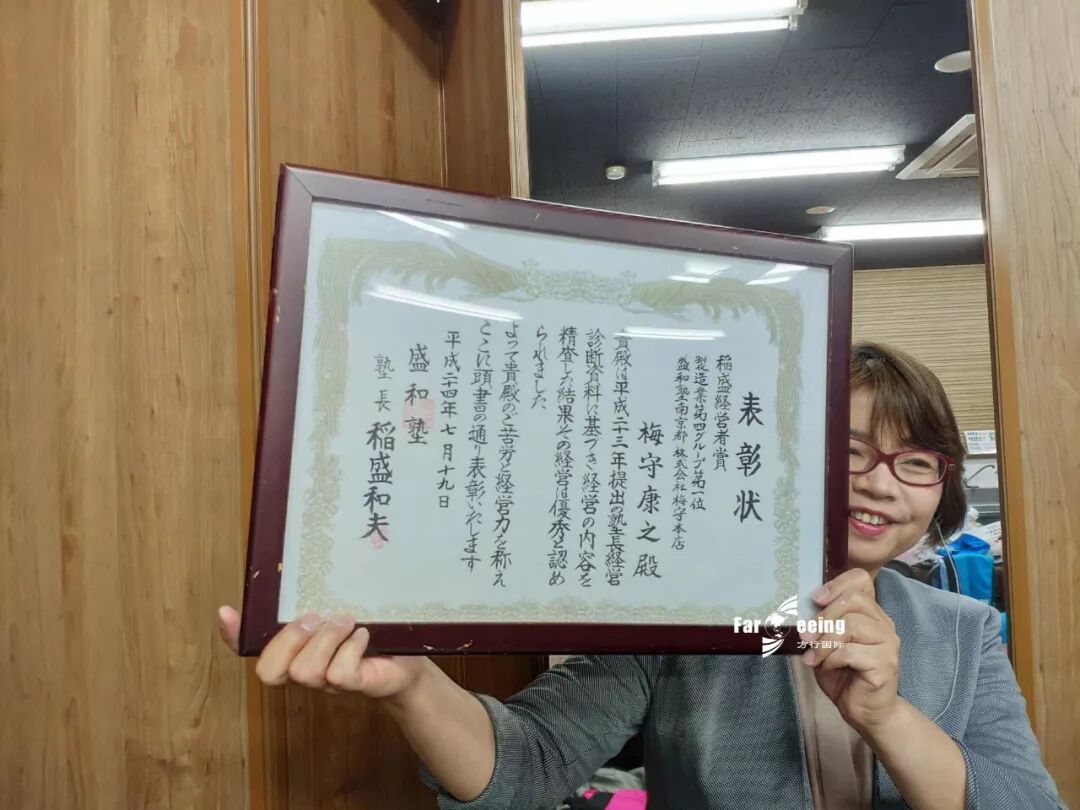 表彰状
稲盛経営者賞
製造業第四グループ第一位
盛和塾南京都 株式会社梅守本店
梅守康之殿
貴殿は平成二十三年提出の塾長経営
診断資料に基づき経営の内容を
精査した結果その経営は優秀と認め
られました
よって貴殿のご苦労と経営力を称え
ここに頭書の通り表彰いたします
平成二十四年七月十九日
盛和塾
塾長 稲盛和夫
Far eeing
方行国际